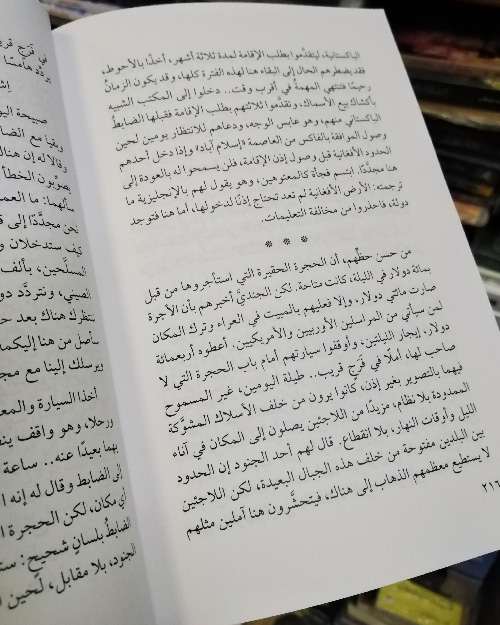 الباكستانية، ليتقدَّموا بطلب الإقامة لمدة ثلاثة أشهر، أخذًا بالأحوط،
فقد يضطرهم الحال إلى البقاء هنا لهذه الفترة كلها، وقد يكون الزمانُ
رحيمًا فتنتهي المهمةُ في أقرب وقت.. دخلوا إلى المكتب الشبيه
بأكشاك بيع الأسماك، وتقدَّموا ثلاثتهم بطلب الإقامة فقبلها الضابطُ
الباكستاني منهم، وهو عابس الوجه، ودعاهم للانتظار يومين لحين
وصول الموافقة بالفاكس من العاصمة «إسلام آباد» وإذا دخل أحدهم
الحدود الأفغانية قبل وصول إذن الإقامة، فلن يسمحوا له بالعودة إلى
هنا مجددًا. ابتسم فجأة كالمعتوهين، وهو يقول لهم بالإنجليزية ما
ترجمته: الأرض الأفغانية لم تعد تحتاج إذنًا لدخولها، أما هنا فتوجد
دولة، فاحذروا من مخالفة التعليمات.
* * *
من حسن حظِّهم، أن الحجرة الحقيرة التي استأجروها من قبل
بمائة دولار في الليلة، كانت متاحة. لكن الجنديَّ أخبرهم بأن الأجرة
صارت مائتي دولار. وإلا فعليهم بالمبيت في العراء وترك المكان
لمن سيأتي من المراسلين الأوربيين والأمريكيين. أعطوه أربعمائة
دولار. إيجار الليلتين، وأوقفوا سيارتهم أمام باب الحجرة التي لا
صاحب لها، أملًا في فَرَجٍ قريب.. طيلة اليومين، غير المسموح
فيهما بالتصوير بغير إذن، كانوا يرون من خلف الأسلاك المشوَّكة
الممدودة بلا نظام، مزيدًا من اللاجئين يصلون إلى المكان في آناء
الليل وأوقات النهار، بلا انقطاع. قال لهم أحد الجنود إن الحدود
بين البلدين مفتوحة من خلف هذه الجبال البعيدة، لكن اللاجئين
لا يستطيع معظمهم الذهاب إلى هناك، فيتحشَّرون هنا آملين مثلهم
٢١٦
في فَرَجٍ قر
صبيحة الي
وبقيا مع الضا
وقالا له إن هناك
يصوِّبون الخطأ
سألهما: ما العم
نحن مجدَّدًا إلى ق
كيف ستدخلان و
المسلَّحين، بألف
الصيني، ونتردَّد دو
ينتظرك هناك بعد ح
سأصل من هنا إليكما
ويرسلك إلينا مع مج
أخذا السيارة والمع
ورحلا، وهو واقف ينظ
بهما بعيدًا عنه.. ساعة
إلى الضابط وقال له إنه ا
أي مكان، لكن الحجرة ا
الضابطُ بلسانٍ شحيح: ست
الجنود، بلا مقابل، لحين ا